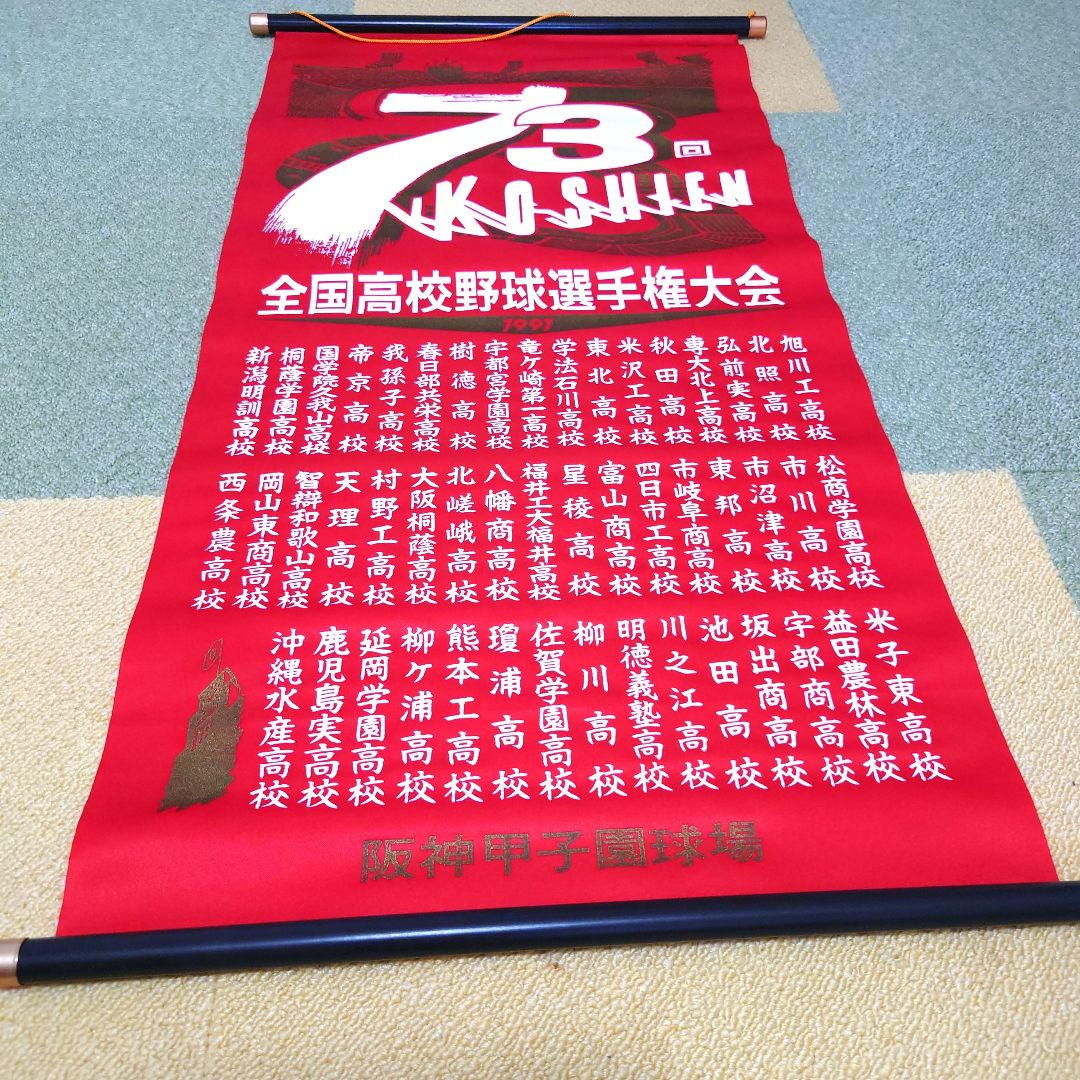 73回
KOSHIEN
全国高校野球選手権大会
1991
旭川工高校
北照高校
弘前実高校
専大北上高校
秋田高校
米沢工高校
東北高校
学法石川高校
竜ケ崎第一高校
宇都宮学園高校
樹徳高校
春日部共栄高校
我孫子高校
帝京高校
国学院久我山高校
桐蔭学園高校
新潟明訓高校
松商学園高校
市川高校
市沼津高校
東邦高校
市岐阜商高校
四日市工高校
富山商高校
星稜高校
福井工大福井高校
八幡商高校
北嵯峨高校
大阪桐蔭高校
村野工高校
天理高校
智辯和歌山高校
岡山東商高校
西条農高校
米子東高校
益田農林高校
宇部商高校
坂出商高校
池田高校
川之江高校
明徳義塾高校
柳川高校
佐賀学園高校
瓊浦高校
熊本工高校
柳ケ浦高校
延岡学園高校
鹿児島実高校
沖縄水産高校
阪神甲子園球場